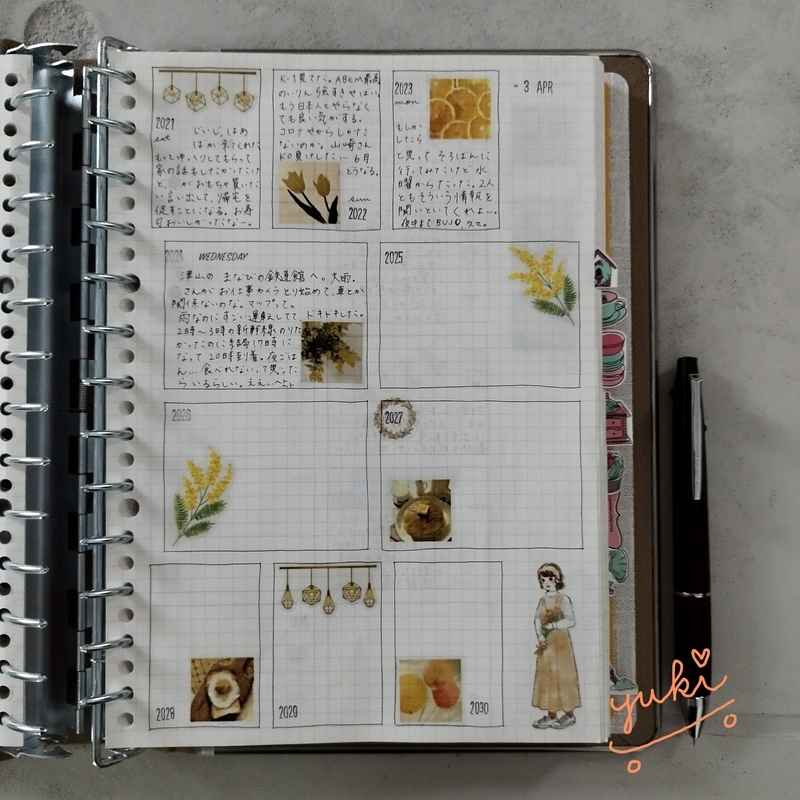 - 3 APR
2021
sat
じいじ、ばあ
ばが来てくれた
もっとゆっくりしてもらって
家の話もしたかったけど
と、がおもちゃ買いた
い言い出して、帰宅を
促すことになる。お寿
司おいしかったなー。
K-1見てた。ABEMA最高
のいりん強すぎやばい。
もう日本人とやらなく
ても良い気がする。
コロナやからしかたた
ないのか。山崎さん
KO負けしたい… 6月
どうなる。
sun
2022
2023
mon
もしか
したら
と思って そろばんに
行ってみたけど 水
曜からだった。2人
ともそういう情報を
聞いといてくれよー。
夜中までBUJO、久々。
WEDNESDAY
津山の まなびの鉄道館へ。大雨。
さんがお仕事カメラとり始めて、車とか
関係ないのな。マップって。
雨なのにすごい運転してて ドキドキした。
2時〜3時の新幹線のりた
かったのに結局17時に
なって 20時到着。夜ごは
ん…食べれないって思った
ら いるらしい。ええ…
2025
2026
2027
2028
2029
2030
yuki